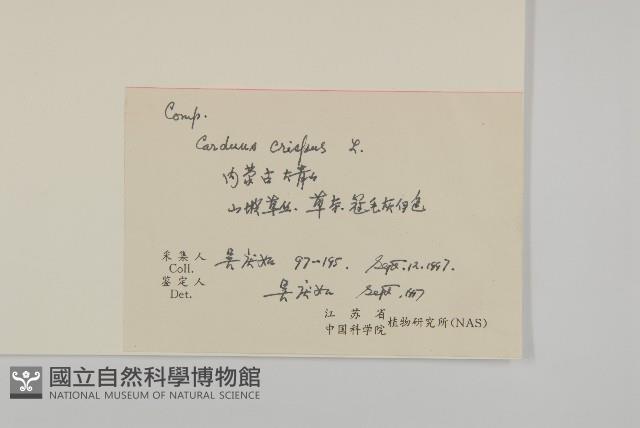 Comp.
Carduus crispus L.
内蒙古大青山
山坡草丛. 草本. 冠毛灰白色
采集人
Coll.
吴庆如 97-195. Sept. 12. 1997.
鉴定人
Det.
吴庆如 Sept. 1997
江苏省
中国科学院 植物研究所(NAS)
國立自然科學博物館
NATIONAL MUSEUM OF NATURAL SCIENCE